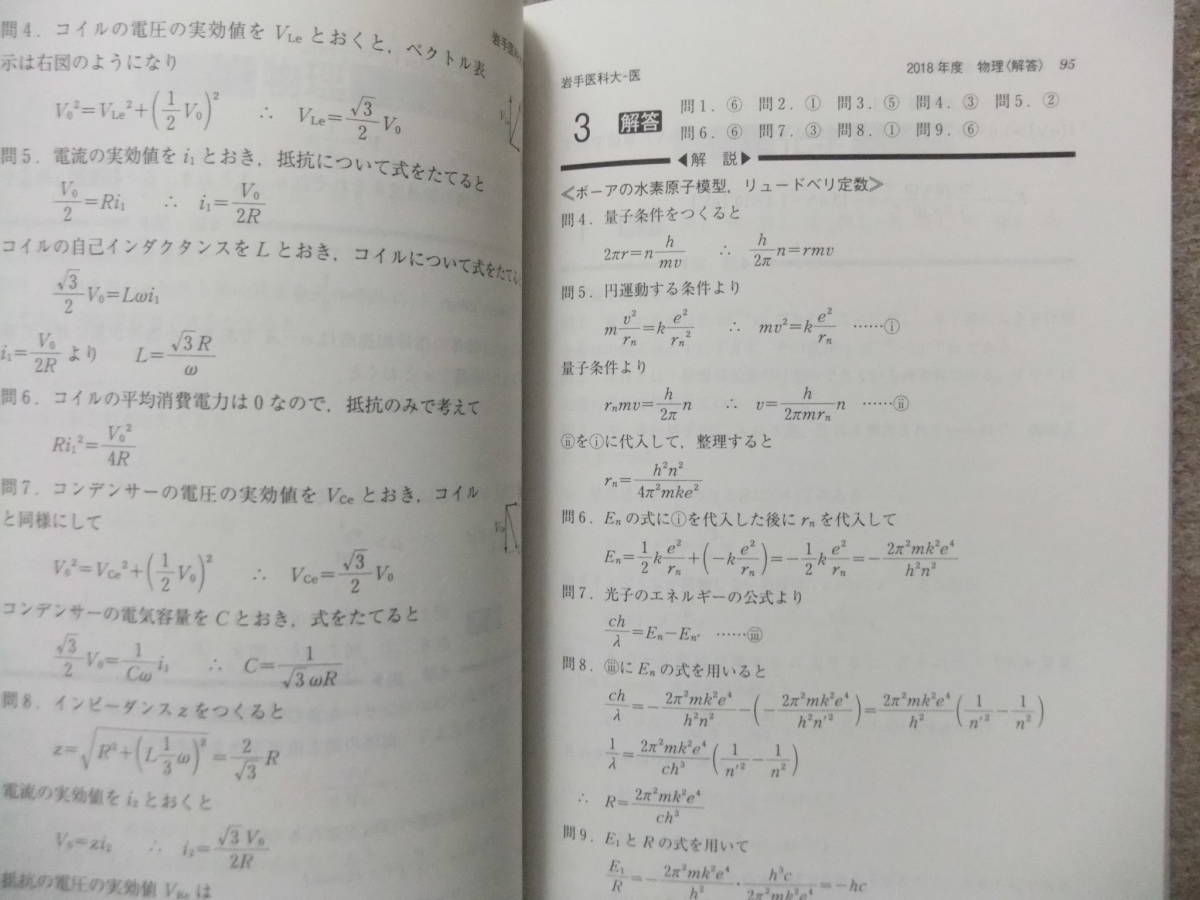 問4．コイルの電圧の実効値を V_Le とおくと，ベクトル表
示は右図のようになり
V₀²=V_Le²+(1/2 V₀)² ∴ V_Le=√3/2 V₀
問5．電流の実効値を i₁とおき，抵抗について式をたてると
V₀/2=Ri₁ ∴ i₁=V₀/2R
コイルの自己インダクタンスを L とおき，コイルについて式をたてると
√3/2 V₀=Lωi₁
i₁=V₀/2R より L=√3 R/ω
問6．コイルの平均消費電力は0なので，抵抗のみで考えて
Ri₁²=V₀²/4R
問7．コンデンサーの電圧の実効値を V_Ce とおき，コイル
と同様にして
V₀²=V_Ce²+(1/2 V₀)² ∴ V_Ce=√3/2 V₀
コンデンサーの電気容量を C とおき，式をたてると
√3/2 V₀=1/Cω i₁ ∴ C=1/√3 ωR
問8．インピーダンス z をつくると
z=√(R²+(L 1/3 ω)²)=2/√3 R
電流の実効値を i₂とおくと
V₀=zi₂ ∴ i₂=√3 V₀/2R
抵抗の電圧の実効値
岩手医
岩手医科大-医 2018年度 物理〈解答〉 95
3 解答 問1．⑥ 問2．① 問3．⑤ 問4．③ 問5．②
問6．⑥ 問7．③ 問8．① 問9．⑥
◀解 説▶
≪ボーアの水素原子模型，リュードベリ定数≫
問4．量子条件をつくると
2πr=n h/mv ∴ h/2π n=rmv
問5．円運動する条件より
m v²/rₙ=k e²/rₙ² ∴ mv²=k e²/rₙ ……ⓘ
量子条件より
rₙmv=h/2π n ∴ v=h/2πmrₙ n ……ⓘⓘ
ⓘⓘをⓘに代入して，整理すると
rₙ=h²n²/4π²mke²
問6．Eₙの式にⓘを代入した後に rₙを代入して
Eₙ=1/2 k e²/rₙ+(-k e²/rₙ)=-1/2 k e²/rₙ=-2π²mk²e⁴/h²n²
問7．光子のエネルギーの公式より
ch/λ=Eₙ-Eₙ′ ……ⓘⓘⓘ
問8．ⓘⓘⓘに Eₙの式を用いると
ch/λ=-2π²mk²e⁴/h²n²-(-2π²mk²e⁴/h²n′²)=2π²mk²e⁴/h²(1/n′²-1/n²)
1/λ=2π²mk²e⁴/ch³(1/n′²-1/n²)
∴ R=2π²mk²e⁴/ch³
問9．E₁と R の式を用いて
E₁/R=-2π²mk²e⁴/h²・h³c/2π²mk²e⁴=-hc